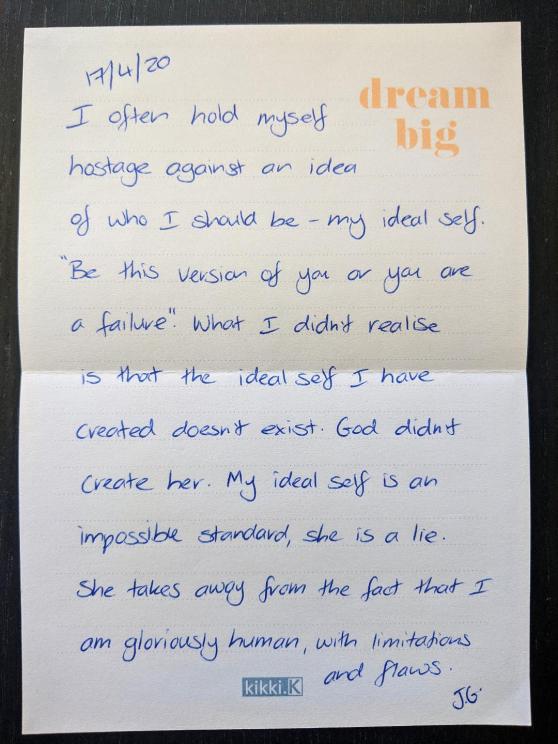 17/4/20
dream
big
I often hold myself
hostage against an idea
of who I should be - my ideal self.
"Be this version of you or you are
a failure". What I didn't realise
is that the ideal self I have
created doesn't exist. God didn't
create her. My ideal self is an
impossible standard, she is a lie.
She takes away from the fact that I
am gloriously human, with limitations
and flaws.
kikki.K
J.G.